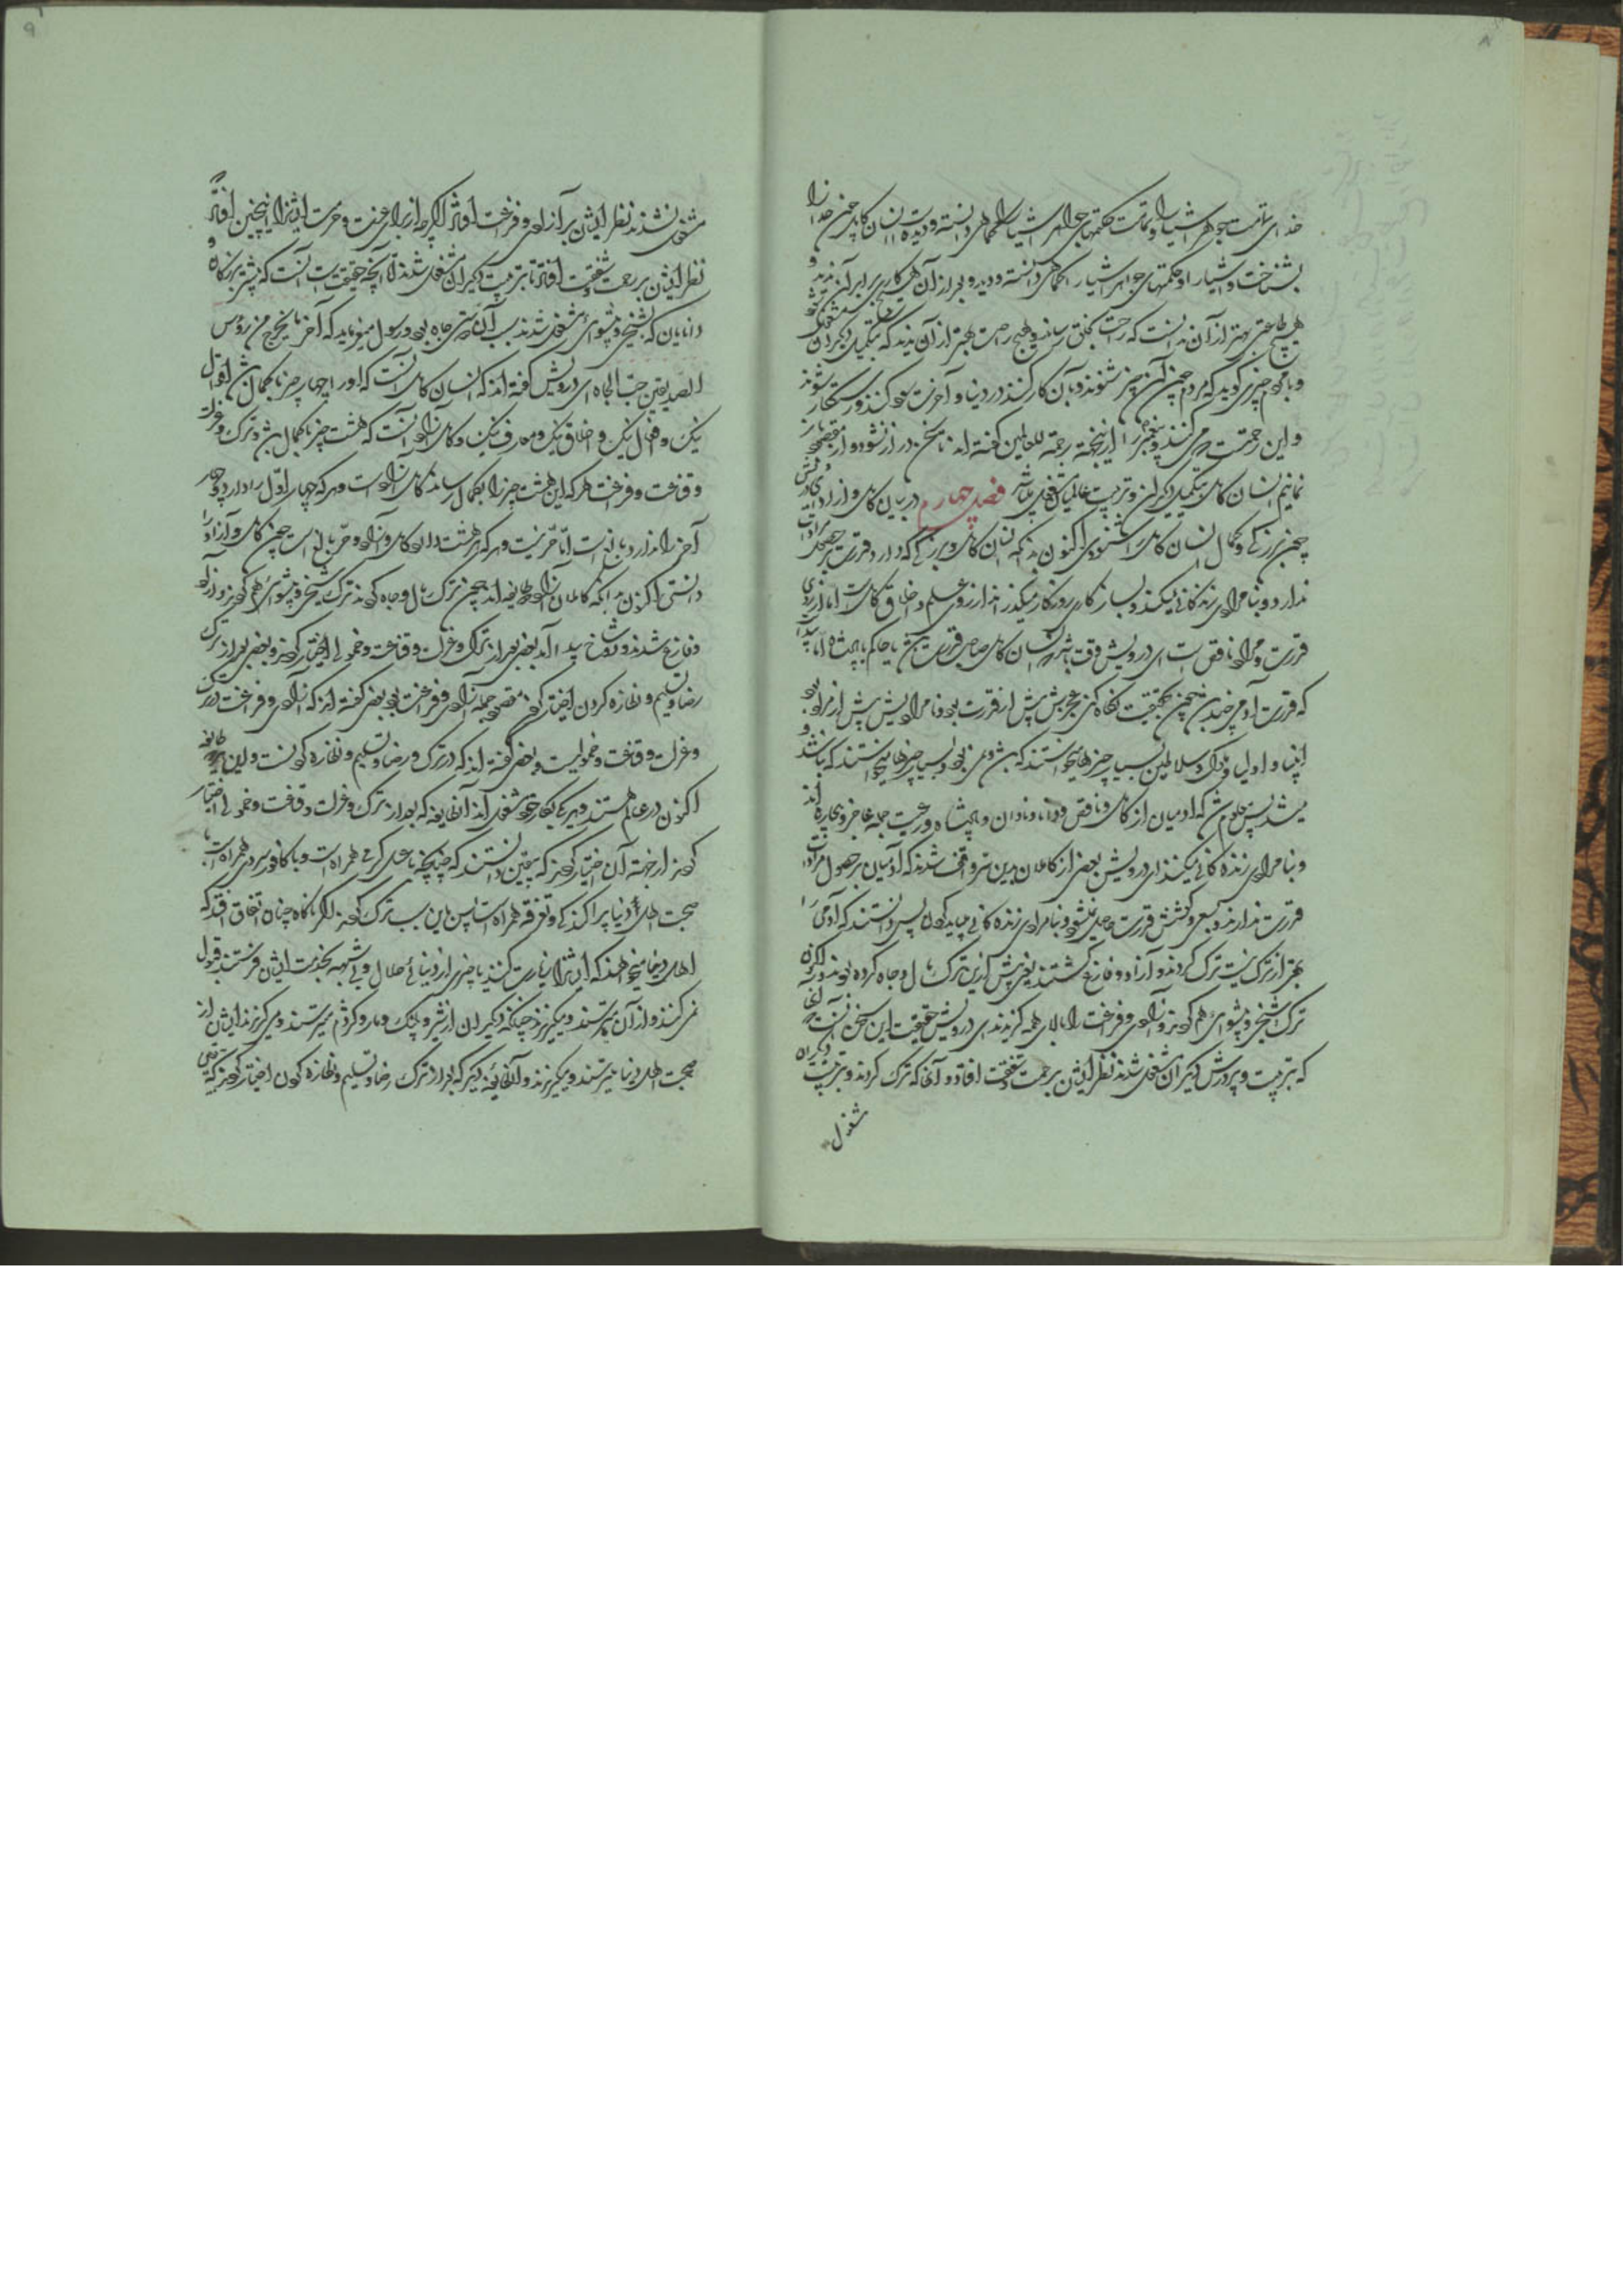 بشناخت و اشیا را و حکمتهای جواهر اشیا را کماهی دانسته و دیده و بعد از آن هیچ کار برابر آن ندید و
هیچ طاعتی بهتر از آن ندانست که راحت بخلق رساند و هیچ راحت بهتر از آن ندید که بتکمیل دیگران مشغول شود
و با مردم چیزی گوید که مردم چون آن چیز بشنوند و بآن کار کنند در دنیا و آخرت سود کنند و رستگار شوند
و این رحمت می کنند و پیغمبر را ازینجهة رحمة للعالمین گفته اند تا سخن دراز نشود و از مقصود باز
نمانیم انسان کامل بتکمیل دیگران و تربیت عالمیان مشغول باشد فصل چهارم در بیان کامل و آزاد ای درویش
چون بزرگی و کمال انسان کامل را شنودی اکنون بدانکه انسان کامل با این بزرگی که دارد قدرت بر حصول مرادات
ندارد و بنامرادی زندگانی میکند و بسازگاری روزگار میگذراند از روی علم و اخلاق کاملست اما از روی
قدرت و مراد ناقص است ای درویش وقت باشد که انسان کامل صاحب قدرت باشد یا حاکم یا پادشاه اما پیدا
که قدرت آدمی چند بود چون بحقیقت نگاه کنی عجزش بیش از قدرت بود و نامرادیش بیش از مراد بود
انبیا و اولیا و ملوک و سلاطین بسیار چیزها میخواستند که باشد و نمی بود و بسیار چیزها نمیخواستند که باشد و
میشد پس معلوم شد که آدمیان از کامل و ناقص و دانا و نادان و پادشاه و رعیت جمله عاجز و بیچاره اند
و بنامرادی زنده گانی میکنند ای درویش بعضی از کاملان بدین سر واقف شدند که آدمیان بر حصول مرادات
قدرت ندارند و بسعی و کوشش قدرت حاصل نمیشود و بنامرادی زنده گانی میباید کردن پس دانستند که آدمی را
بهتر از ترک نیست ترک کردند و آزاد و فارغ گشتند یعنی پیش ازین ترک مال و جاه کرده بودند اکنون
ترک شیخی و پیشوائی هم کردند و آزادی و فراغت را بالای همه گزیدند ای درویش حقیقت این سخن آنست آنها
که بتربیت و پرورش دیگران مشغول شدند نظر ایشان بر رحمت و شفقت افتاد و آنها که ترک کردند و بتربیت دیگران
مشغول
مشغول نشدند نظر ایشان بر آزادی و فراغت افتاد
نظر ایشان بر رحمت و شفقت افتاد تا بتربیت دیگران مشغول شدند امّا آنچه حقیقت است آنست که بیشتر بزرگان و
دانایان که بشیخی و پیشوائی مشغول شدند سبب آن دوستی جاه بود رسول میفرماید که آخر ما یخرج من رؤس
الصدیقین حبّ الجاه ای درویش گفته اند که انسان کامل آنست که او را چهار چیز بکمال باشد اقوال
نیک و افعال نیک و اخلاق نیک و معارف نیک و کامل آزاد آنست که هشت چیز بکمال باشد و ترک و عزلت
و قناعت و فراغت هر که این هشت چیز را بکمال رساند کامل آزاد است و هر که چهار اوّل را دارد و چهار
آخر را ندارد بالغ است امّا حرّ نیست و هر که هر هشت دارد کامل و آزاد و حرّ بالغ است چون کامل و آزاد را
دانستی اکنون بدانکه کاملان آزاد دو طایفه اند چون ترک مال و جاه کردند ترک شیخی و پیشوائی هم کردند و آزاد
و فارغ شدند دو شاخ پیدا آمد بعضی بعد از ترک عزلت و قناعت و خمولی اختیار کردند و بعضی بعد از ترک
رضا و تسلیم و نظاره کردن اختیار کردند مقصود جمله آزادی و فراغت بود بعضی گفته اند که آزادی و فراغت در ترک
و عزلت و قناعت و خمولیست و بعضی گفته اند که در ترک و رضا و تسلیم و نظاره کردنست و این هر دو طایفه
اکنون در عالم هستند و هر یکی بکار خود مشغول اند آن طایفه که بعد از ترک و عزلت و قناعت و خمولی اختیار
کردند از جهة آن اختیار کردند که بیقین دانستند که چنانچه با عسل گرمی همراه است و با کافور سردی همراه است با
صحبت اهل دنیا پراکندگی و تفرقه همراه است پس باین سبب ترک کردند اگر ناگاه چنان اتفاق افتد که
اهل دنیا میخواهند که ایشان را زیارت کنند یا چیزی از دنیائی حلال و بی شبهه بخدمت ایشان فرستند قبول
نمی کنند و از آن میترسند و میگریزند چنانکه دیگران از شیر و پلنگ و مار و کژدم میترسند و میگریزند ایشان از
صحبت اهل دنیا میترسند و میگریزند و آن طایفه دیگر که بعد از ترک رضا و تسلیم و نظاره کردن اختیار کردند که بیقین